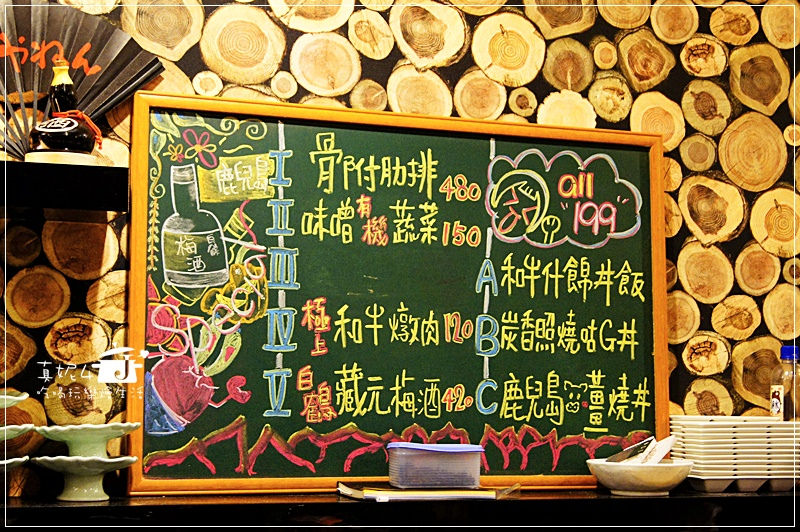 おねん
鹿兒島
梅酒
白鶴
Special
I 骨附肋排 480
II 味噌有機蔬菜 150
III
IV 極上和牛燉肉 120
V 白鶴藏元梅酒 420
all
"199"
A 和牛什錦丼飯
B 炭香照燒咕G丼
C 鹿兒島薑燒丼
真妮
吃喝玩樂過生活